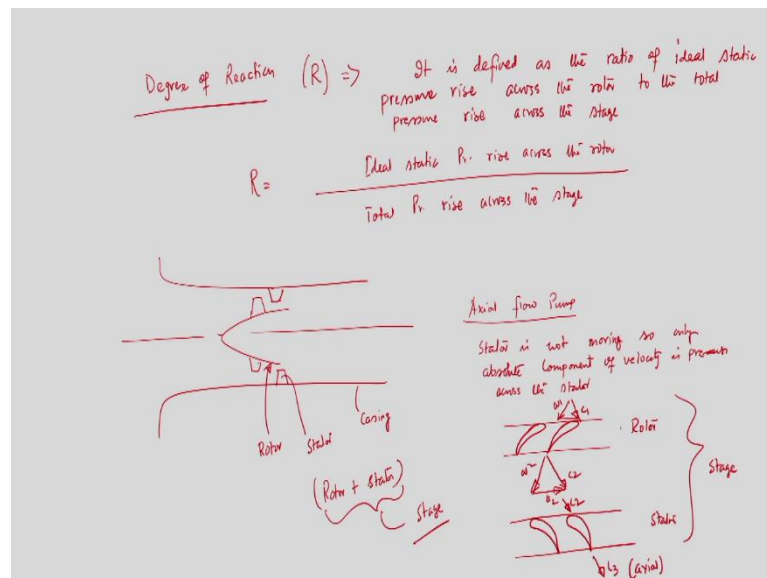 Degree of Reaction (R) => It is defined as the ratio of ideal static
pressure rise across the rotor to the total
pressure rise across the stage
R=
Ideal static Pr. rise across the rotor
Total Pr. rise across the stage
Rotor
Stator
Casing
(Rotor + Stator)
Stage
Axial flow Pump
Stator is not moving so only
absolute component of velocity is present
across the stator
w1 c1
Rotor
w2 c2
c2
Stator
Stage
c3 (axial)